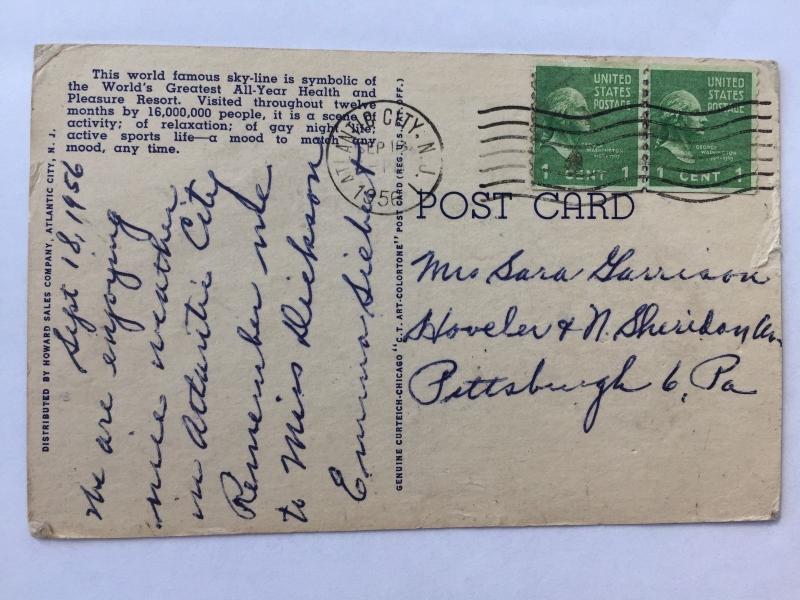 This world famous sky-line is symbolic of
the World's Greatest All-Year Health and
Pleasure Resort. Visited throughout twelve
months by 16,000,000 people, it is a scene of
activity; of relaxation; of gay night life;
active sports life—a mood to match any
mood, any time.
DISTRIBUTED BY HOWARD SALES COMPANY, ATLANTIC CITY, N. J.
Sept 18, 1956
We are enjoying
nice weather
in Atlantic City
Remember me
to Miss Dickson
Emma Siebert
GENUINE CURTEICH-CHICAGO "C.T. ART-COLORTONE" POST CARD (REG. U.S. PAT. OFF.)
ATLANTIC CITY, N.J.
SEP
1956
UNITED
STATES
POSTAGE
GEORGE
WASHINGTON
1 CENT 1
UNITED
STATES
POSTAGE
GEORGE
WASHINGTON
1 CENT 1
POST CARD
Mrs Sara Garrison
Hoveler & N. Sheridan Av.
Pittsburgh 6, Pa